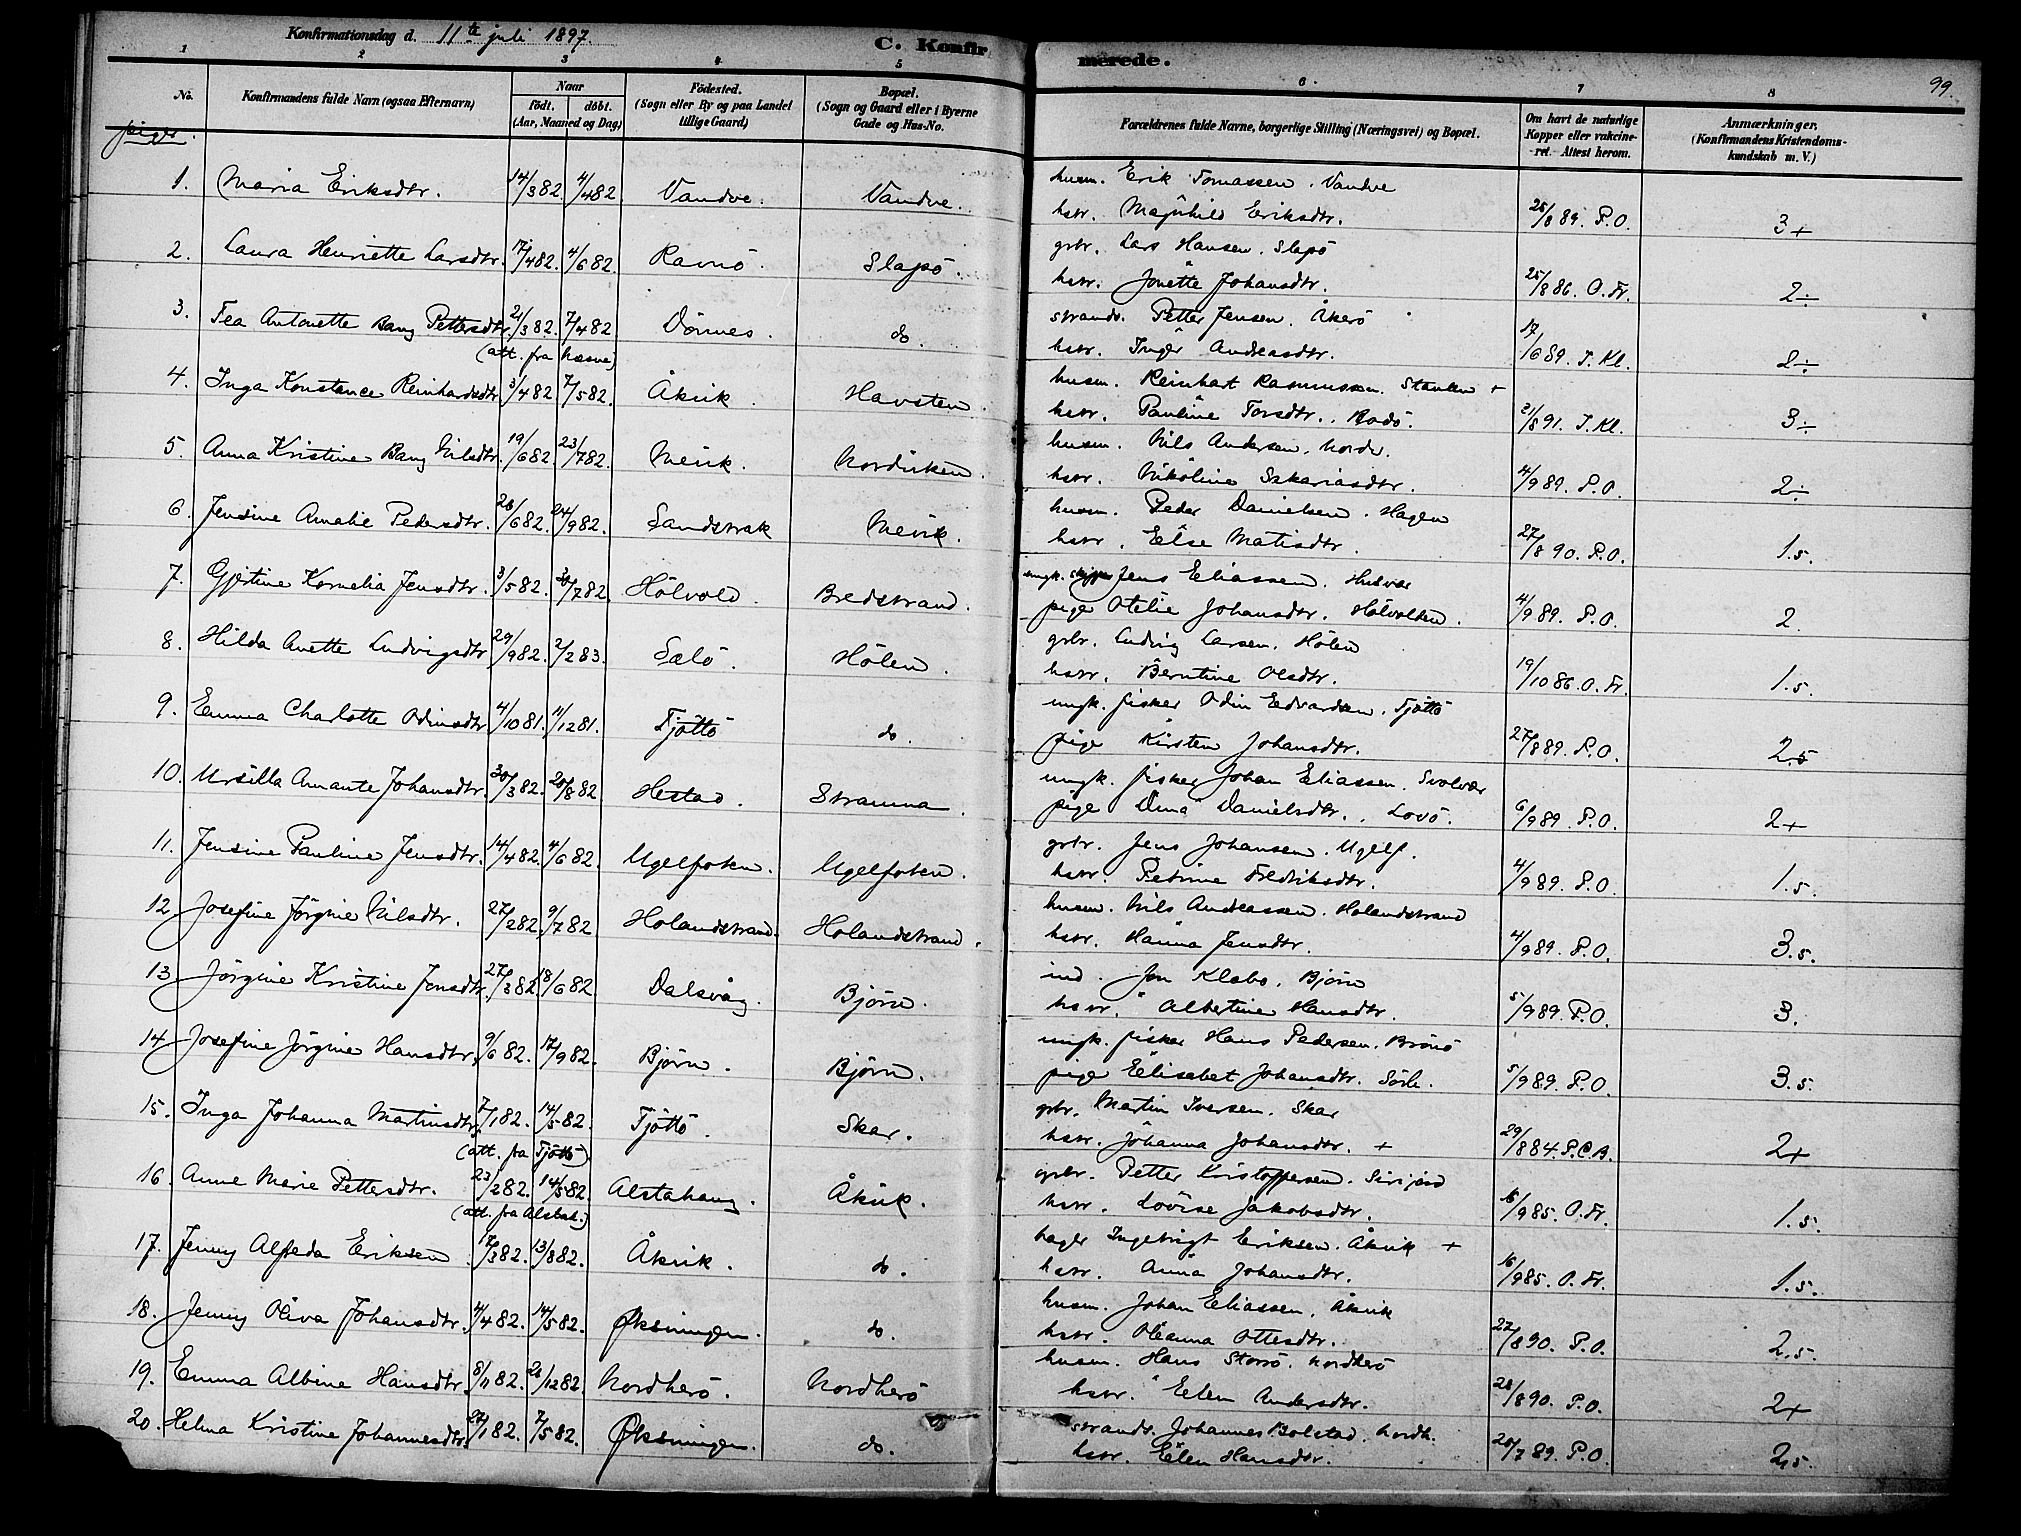 Konfirmationsdag d. 11te juli 1897.
C. Konfirmerede.
99.
1 2 3 4 5 6 7 8
No. Konfirmandens fulde Navn (ogsaa Efternavn) Naar født. døbt. (Aar, Maaned og Dag) Fødested. (Sogn eller By og paa Landet tillige Gaard) Bopæl. (Sogn og Gaard eller i Byerne Gade og Hus-No. Forældrenes fulde Navne, borgerlige Stilling (Næringsvei) og Bopæl. Om havt de naturlige Kopper eller vakcineret. Attest herom. Anmærkninger. (Konfirmandens Kristendomskundskab m. V.)
piger.
1. Maria Eriksdtr. 14/3 82. 4/4 82 Vandve. Vandve. husm. Erik Tomassen. Vandve
hstr. Magnhild Eriksdtr. 26/8 89. P.O. 3+
2. Laura Henriette Larsdtr. 17/4 82. 4/6 82. Ravnö. Slapö. grbr. Lars Hansen. Slapö
hstr. Jonette Johansdtr. 25/8 86. O. Fr. 2÷
3. Tea Antonette Bang Pettersdtr. 21/3 82. 7/4 82 Dönnes. do. strands. Petter Jensen. Åkerö
(att. fra hæsne) hstr. Inger Andreasdtr. 17/6 89. J. Kl. 2÷
4. Inga Konstance Reinhardsdtr 3/4 82 7/5 82. Åkvik. Havsten. husm. Reinhart Rasmussen. +
hstr. Pauline Torsdtr., Rodö. 21/8 91. J. Kl. 3÷
5. Anna Kristine Bang Nilsdtr. 19/6 82. 23/7 82. Mevik. Nordviken. husm. Nils Andersen, Nordv.
hstr. Nikoline Sakariasdtr. 4/9 89. P.O. 2÷
6. Jensine Amalie Pedersdtr. 26/6 82. 24/9 82. Sandstrak Mevik. husm. Peder Danielsen. Hagen
hstr. Else Matisdtr. 27/8 90. P.O. 1.5.
7. Gjertine Kornelia Jensdtr. 3/5 82. 30/7 82. Hölvold. Bredstrand. ungk. skipper Jens Eliassen. Husvær
pige Otelie Johansdtr. Hölvolden. 4/9 89. P.O. 2.
8. Hilda Anette Ludvigsdtr 29/9 82. 2/2 83. Salö. Hölen. grbr. Ludvig Larsen. Hölen
hstr. Berntine Olsdtr. 19/10 86. O. Fr. 1.5.
9. Emma Charlotte Odinsdtr 4/10 81. 11/12 81. Tjöttö do. ungk. fisker Odin Edvardsen. Tjöttö
pige Kirsten Johansdtr. 27/8 89. P.O. 2.5
10. Ursilla Amante Johansdtr. 30/3 82. 20/8 82 Hestad. Stramna. ungk. fisker Johan Eliassen. Svolvær
pige Dina Danielsdtr., Lovö. 6/9 89. P.O. 2+
11. Jensine Pauline Jensdtr. 14/4 82. 4/6 82. Ugelfoten. Ugelfoten. grbr. Jens Johansen. Ugelf.
hstr. Petrine Fredriksdtr. 4/9 89. P.O. 1.5.
12. Josefine Jörgine Nilsdtr. 27/2 82. 9/7 82. Holandstrand. Holandstrand. husm. Nils Andreassen. Holandstrand
hstr. Hanna Jensdtr. 4/9 89. P.O. 3.5.
13. Jörgine Kristine Jensdtr. 27/3 82. 18/6 82 Dalsvåg. Bjørn. ind. Jon Klabo, Bjørn
hstr. Albertine Hansdtr. 5/9 89. P.O. 3.
14. Josefine Jörgine Hansdtr. 9/6 82. 17/9 82. Bjørn. Bjørn. ungk. fisker Hans Pedersen. Brönö
pige Elisabet Johansdtr. Sörh. 5/9 89. P.O. 3.5.
15. Inga Johanna Martinsdtr. 7/1 82. 14/5 82. Tjöttö. Skar. grbr. Martin Iversen. Skar
(att. fra Tjöttö) hstr. Johanna Johansdtr. + 29/8 84. P.C.B. 2+
16. Anne Marie Pettersdtr. 23/2 82. 14/5 82. Alstahaug. Åkvik. grbr. Petter Kristoffersen.
(att. fra Alstah.) hstr. Lovise Jakobsdtr. 16/9 85. O. Fr. 1.5.
17. Jenny Alfreda Eriksen. 17/3 82. 13/8 82. Åkvik. do. bager Ingebrigt Eriksen. Åkvik +
hstr. Anna Johansdtr. 16/9 85. O. Fr. 1.5.
18. Jenny Oliva Johansdtr. 4/4 82. 14/5 82. Øksningen. do. husm. Johan Eliassen, Åkvik
hstr. Oleanna Ottesdtr. 27/8 90. P.O. 2.5.
19. Emma Albine Hansdtr. 8/11 82. 26/12 82. Nordherö. Nordherö husm. Hans Storrö. Nordherö
hstr. Elen Andersdtr. 28/8 90. P.O. 2+
20. Helma Kristine Johannesdtr. 27/1 82. 7/5 82. Øksningen. do. strands. Johannes Bolstad. Nordh.
hstr. Elen Hansdtr. 20/7 89. P.O. 2.5.